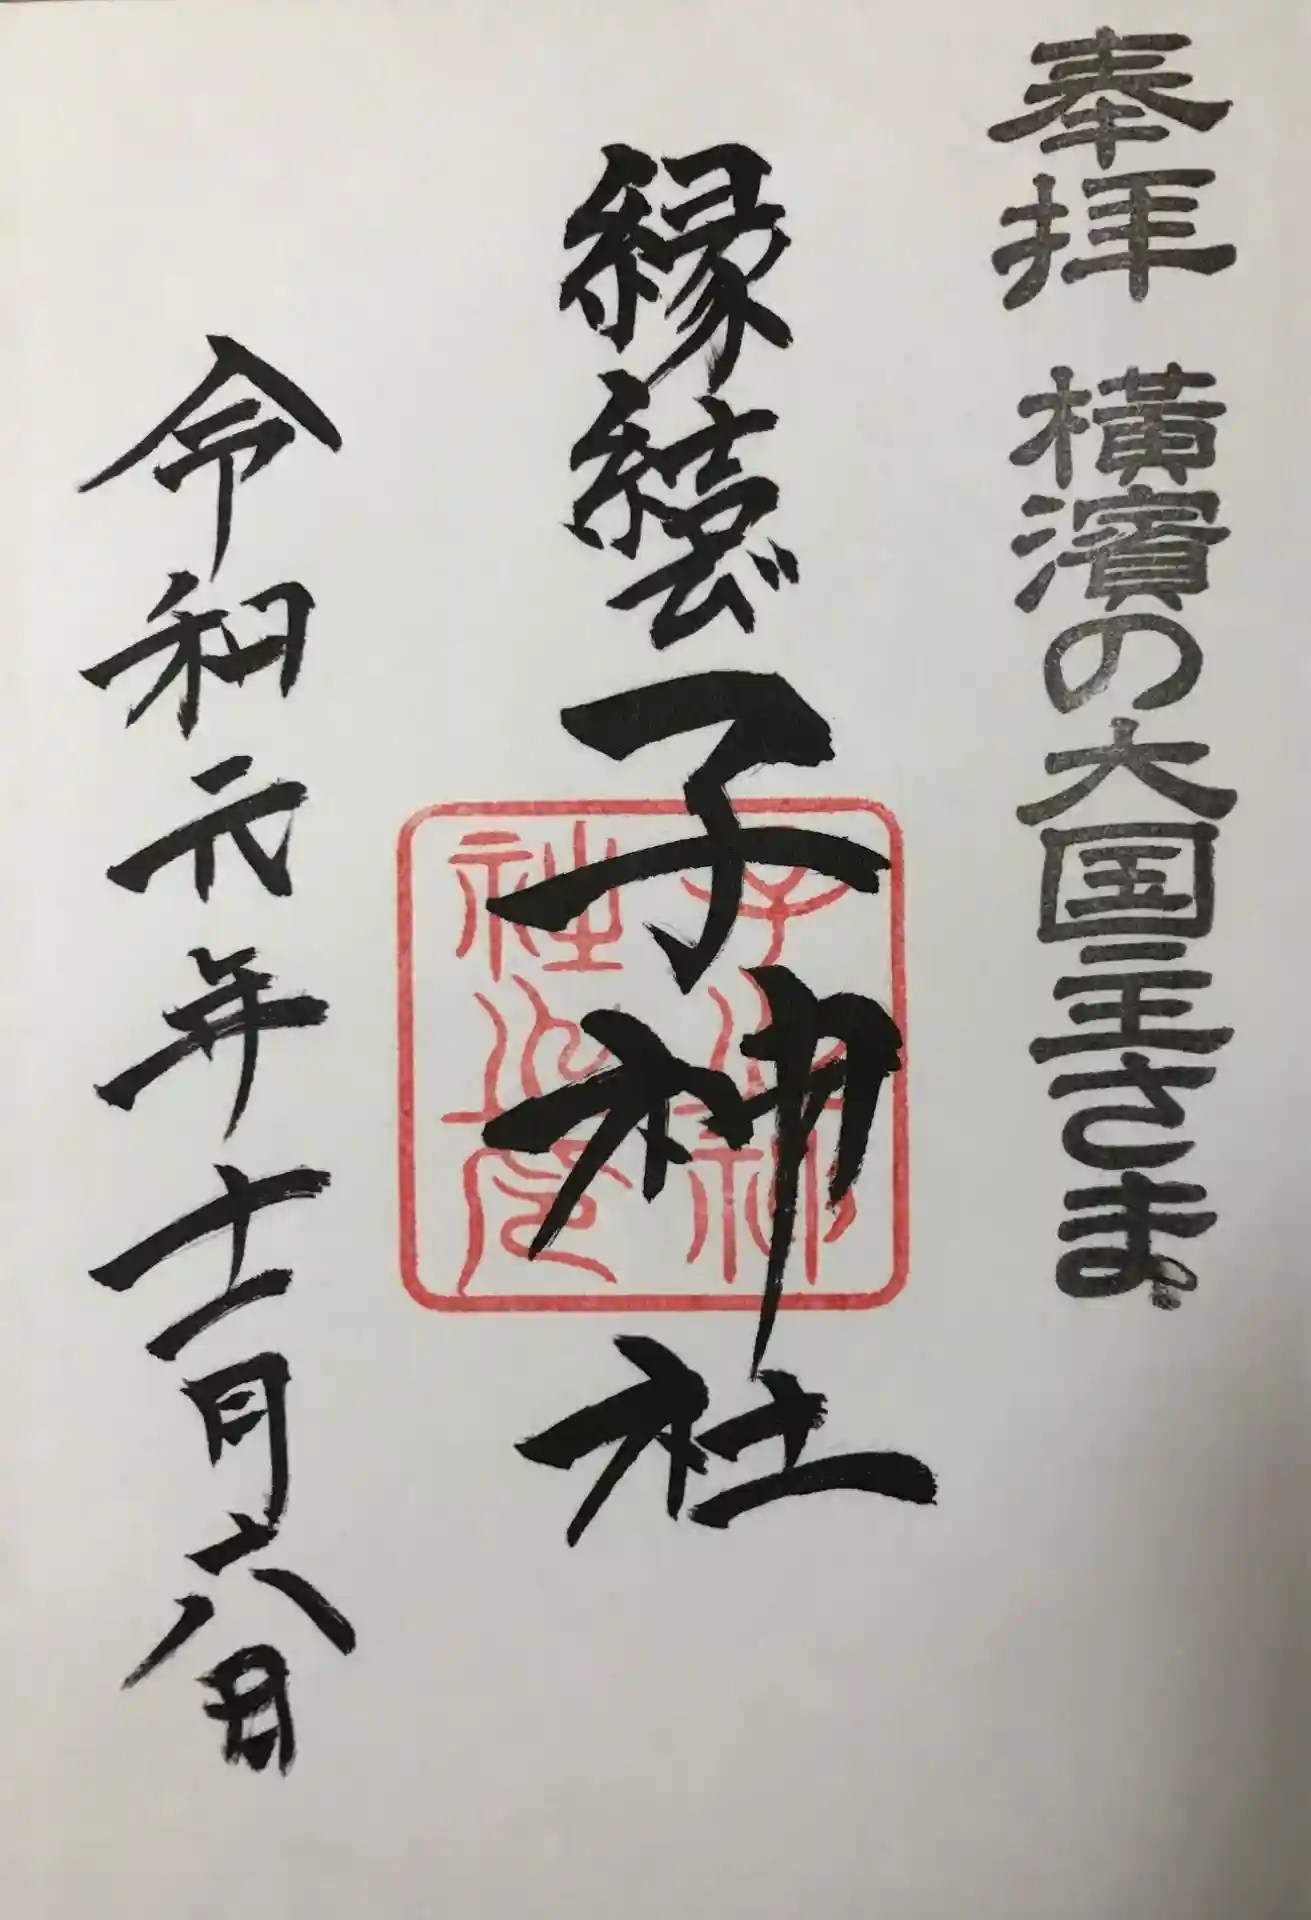 奉拝 横濱の大国主さま
縁結び 子神社
子之神
社之印
令和元年十一月六日